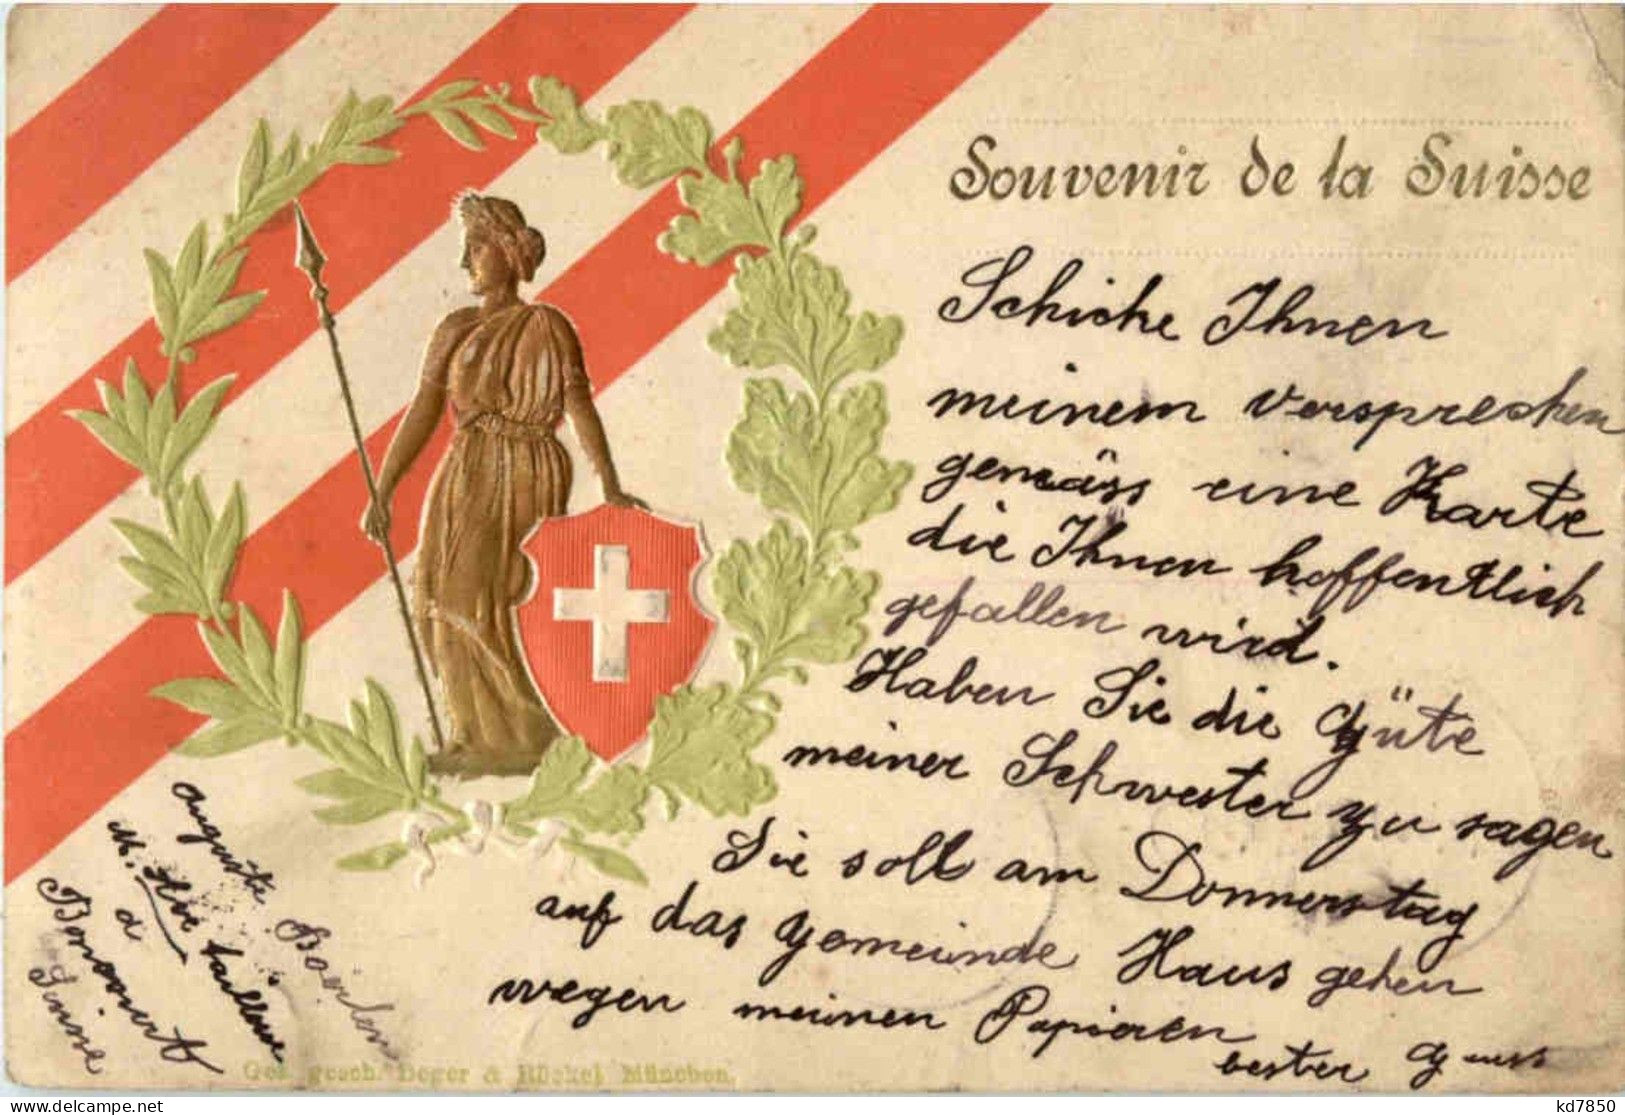 Souvenir de la Suisse
Schicke Ihnen
meinem Versprechen
gemäss eine Karte
die Ihnen hoffentlich
gefallen wird.
Haben Sie die Güte
meiner Schwester zu sagen
Sie soll am Donnerstag
auf das Gemeinde Haus gehen
wegen meinen Papieren
bester Gruss
Auguste
M. tailleur
à
Boncourt
Suisse
Ges. gesch. Deger & Rückel München.
kd7850